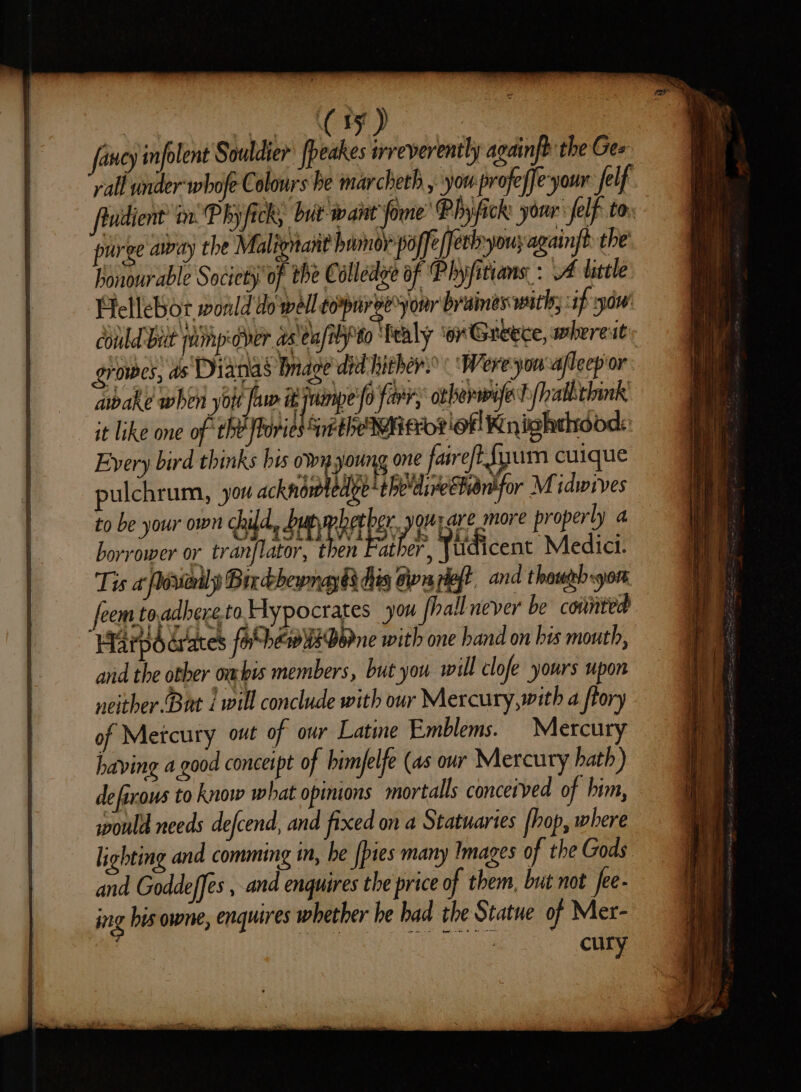 ( 15 )
saucy insolent Souldier speakes irreverently against the Ge-
rall under whose Colours he marcheth, you professe your self
student in Physick, but want some Physick your self to
purge away the Malignant humor possesseth you, against the
honourable Society of the Colledge of Physitians: A little
Hellebor would do well to purge your braines with, if you
could but jump over as easily to Italy or Greece, where it
growes, as Dianas Image did hither. Were you asleep or
awake when you saw it jumpe so farr, otherwise I shall think
it like one of the stories in the Mirror of Knighthood:
Every bird thinks his own young one fairest, suum cuique
pulchrum, you acknowledge the direction for Midwives
to be your own child, but whether you are more properly a
borrower or translator, then Father, Judicent Medici.
Tis a slovenly Bird bewrayes his own nest, and though you
seem to adhere to Hypocrates you shall never be counted
Harpocrates for he was borne with one hand on his mouth,
and the other on his members, but you will close yours upon
neither. But I will conclude with our Mercury, with a story
of Mercury out of our Latine Emblems. Mercury
having a good conceipt of himselfe (as our Mercury hath)
desirous to know what opinions mortalls conceived of him,
would needs descend, and fixed on a Statuaries shop, where
lighting and comming in, he spies many Images of the Gods
and Goddesses, and enquires the price of them, but not see-
ing his owne, enquires whether he had the Statue of Mer-
cury